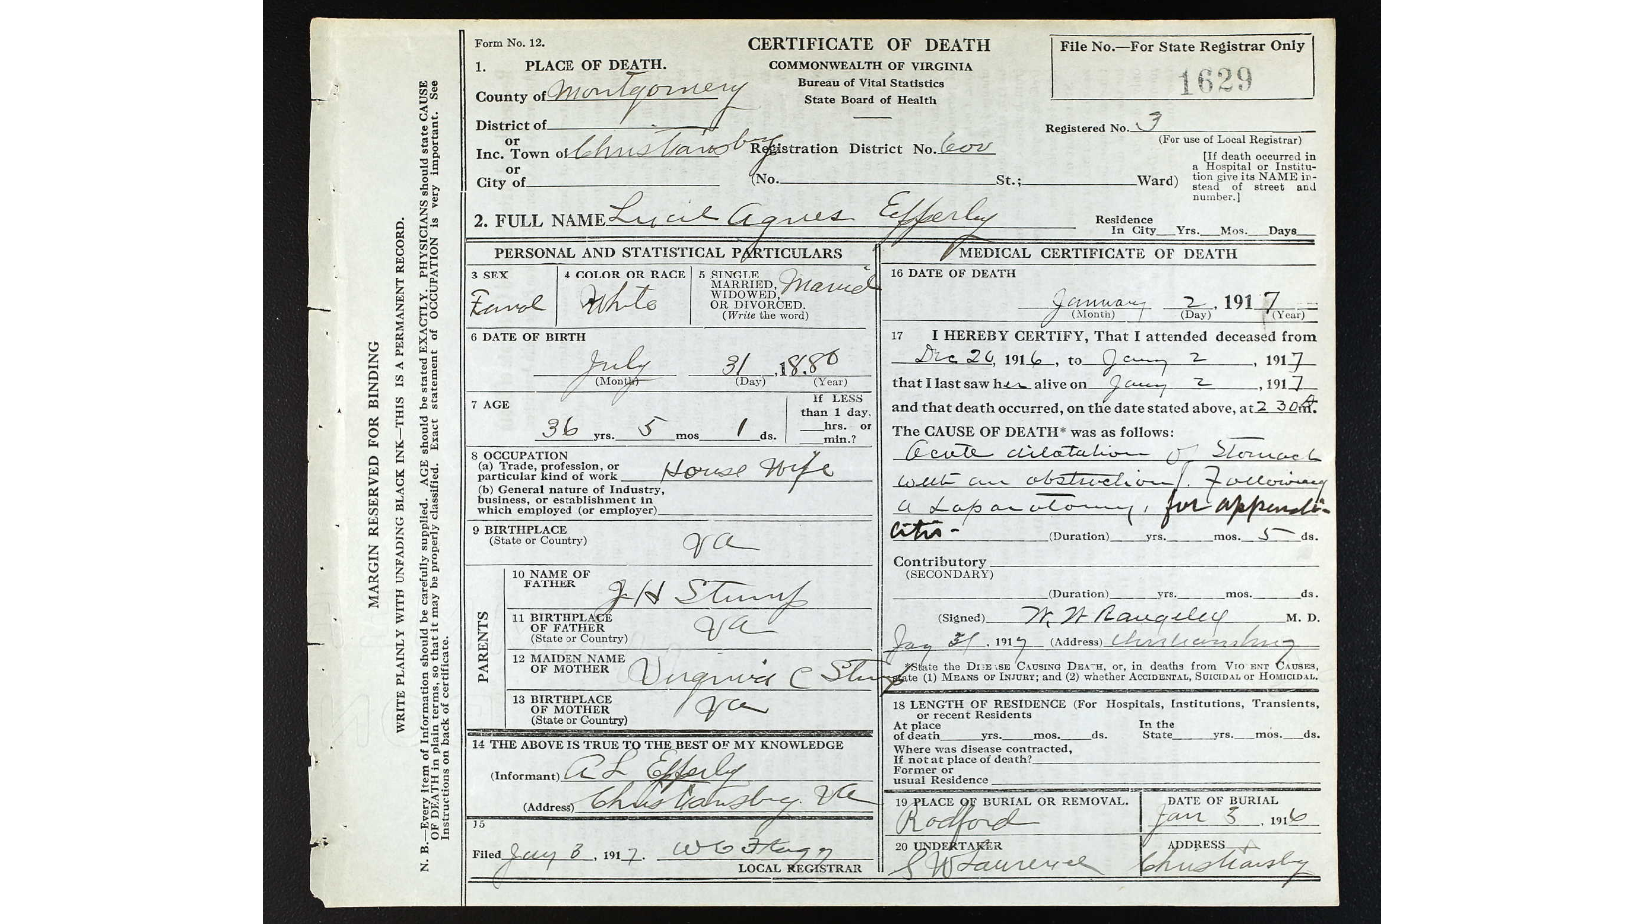 Form No. 12.
CERTIFICATE OF DEATH
COMMONWEALTH OF VIRGINIA
Bureau of Vital Statistics
State Board of Health
File No.—For State Registrar Only
1629
1. PLACE OF DEATH.
County of Montgomery
District of
or
Inc. Town of Christiansburg Registration District No. 600
or
City of (No. St.; Ward)
Registered No. 3
(For use of Local Registrar)
[If death occurred in
a Hospital or Institu-
tion give its NAME in-
stead of street and
number.]
2. FULL NAME Lucil Agnes Epperly
Residence
In City Yrs. Mos. Days
PERSONAL AND STATISTICAL PARTICULARS
3 SEX
4 COLOR OR RACE
White
5 SINGLE,
MARRIED,
WIDOWED,
OR DIVORCED.
(Write the word)
Married
6 DATE OF BIRTH
July 31, 1880
(Month) (Day) (Year)
7 AGE
36 yrs. 5 mos 1 ds.
If LESS
than 1 day,
hrs. or
min.?
8 OCCUPATION
(a) Trade, profession, or
particular kind of work House Wife
(b) General nature of Industry,
business, or establishment in
which employed (or employer)
9 BIRTHPLACE
(State or Country) Va
PARENTS
10 NAME OF
FATHER J H Stump
11 BIRTHPLACE
OF FATHER
(State or Country) Va
12 MAIDEN NAME
OF MOTHER Virginia C Stump
13 BIRTHPLACE
OF MOTHER
(State or Country) Va
14 THE ABOVE IS TRUE TO THE BEST OF MY KNOWLEDGE
(Informant) A L Epperly
(Address) Christiansburg. Va
15
Filed Jany 3, 1917. W C Flagg
LOCAL REGISTRAR
MEDICAL CERTIFICATE OF DEATH
16 DATE OF DEATH
January 2, 1917
(Month) (Day) (Year)
17 I HEREBY CERTIFY, That I attended deceased from
Dec 26, 1916, to Jany 2, 1917
that I last saw her alive on Jany 2, 1917
and that death occurred, on the date stated above, at 2 30 A m.
The CAUSE OF DEATH* was as follows:
Acute dilatation of Stomach
with an obstruction. Following
a Laparotomy, for appendi-
citis -
(Duration) yrs. mos. 5 ds.
Contributory
(SECONDARY)
(Duration) yrs. mos. ds.
(Signed) W. W Rangeley M. D.
1917 (Address) Christiansburg
*State the DISEASE CAUSING DEATH, or, in deaths from VIOLENT CAUSES,
state (1) MEANS OF INJURY; and (2) whether ACCIDENTAL, SUICIDAL OR HOMICIDAL.
18 LENGTH OF RESIDENCE (For Hospitals, Institutions, Transients,
or recent Residents
At place In the
of death yrs. mos. ds. State yrs. mos. ds.
Where was disease contracted,
If not at place of death?
Former or
usual Residence
19 PLACE OF BURIAL OR REMOVAL.
Radford
DATE OF BURIAL
Jan 3, 1916
20 UNDERTAKER
S W Laurence
ADDRESS
Christiansbg
MARGIN RESERVED FOR BINDING
WRITE PLAINLY WITH UNFADING BLACK INK—THIS IS A PERMANENT RECORD.
N. B.—Every item of Information should be carefully supplied. AGE should be stated EXACTLY. PHYSICIANS should state CAUSE
OF DEATH in plain terms, so that it may be properly classified. Exact statement of OCCUPATION is very important. See
Instructions on back of certificate.